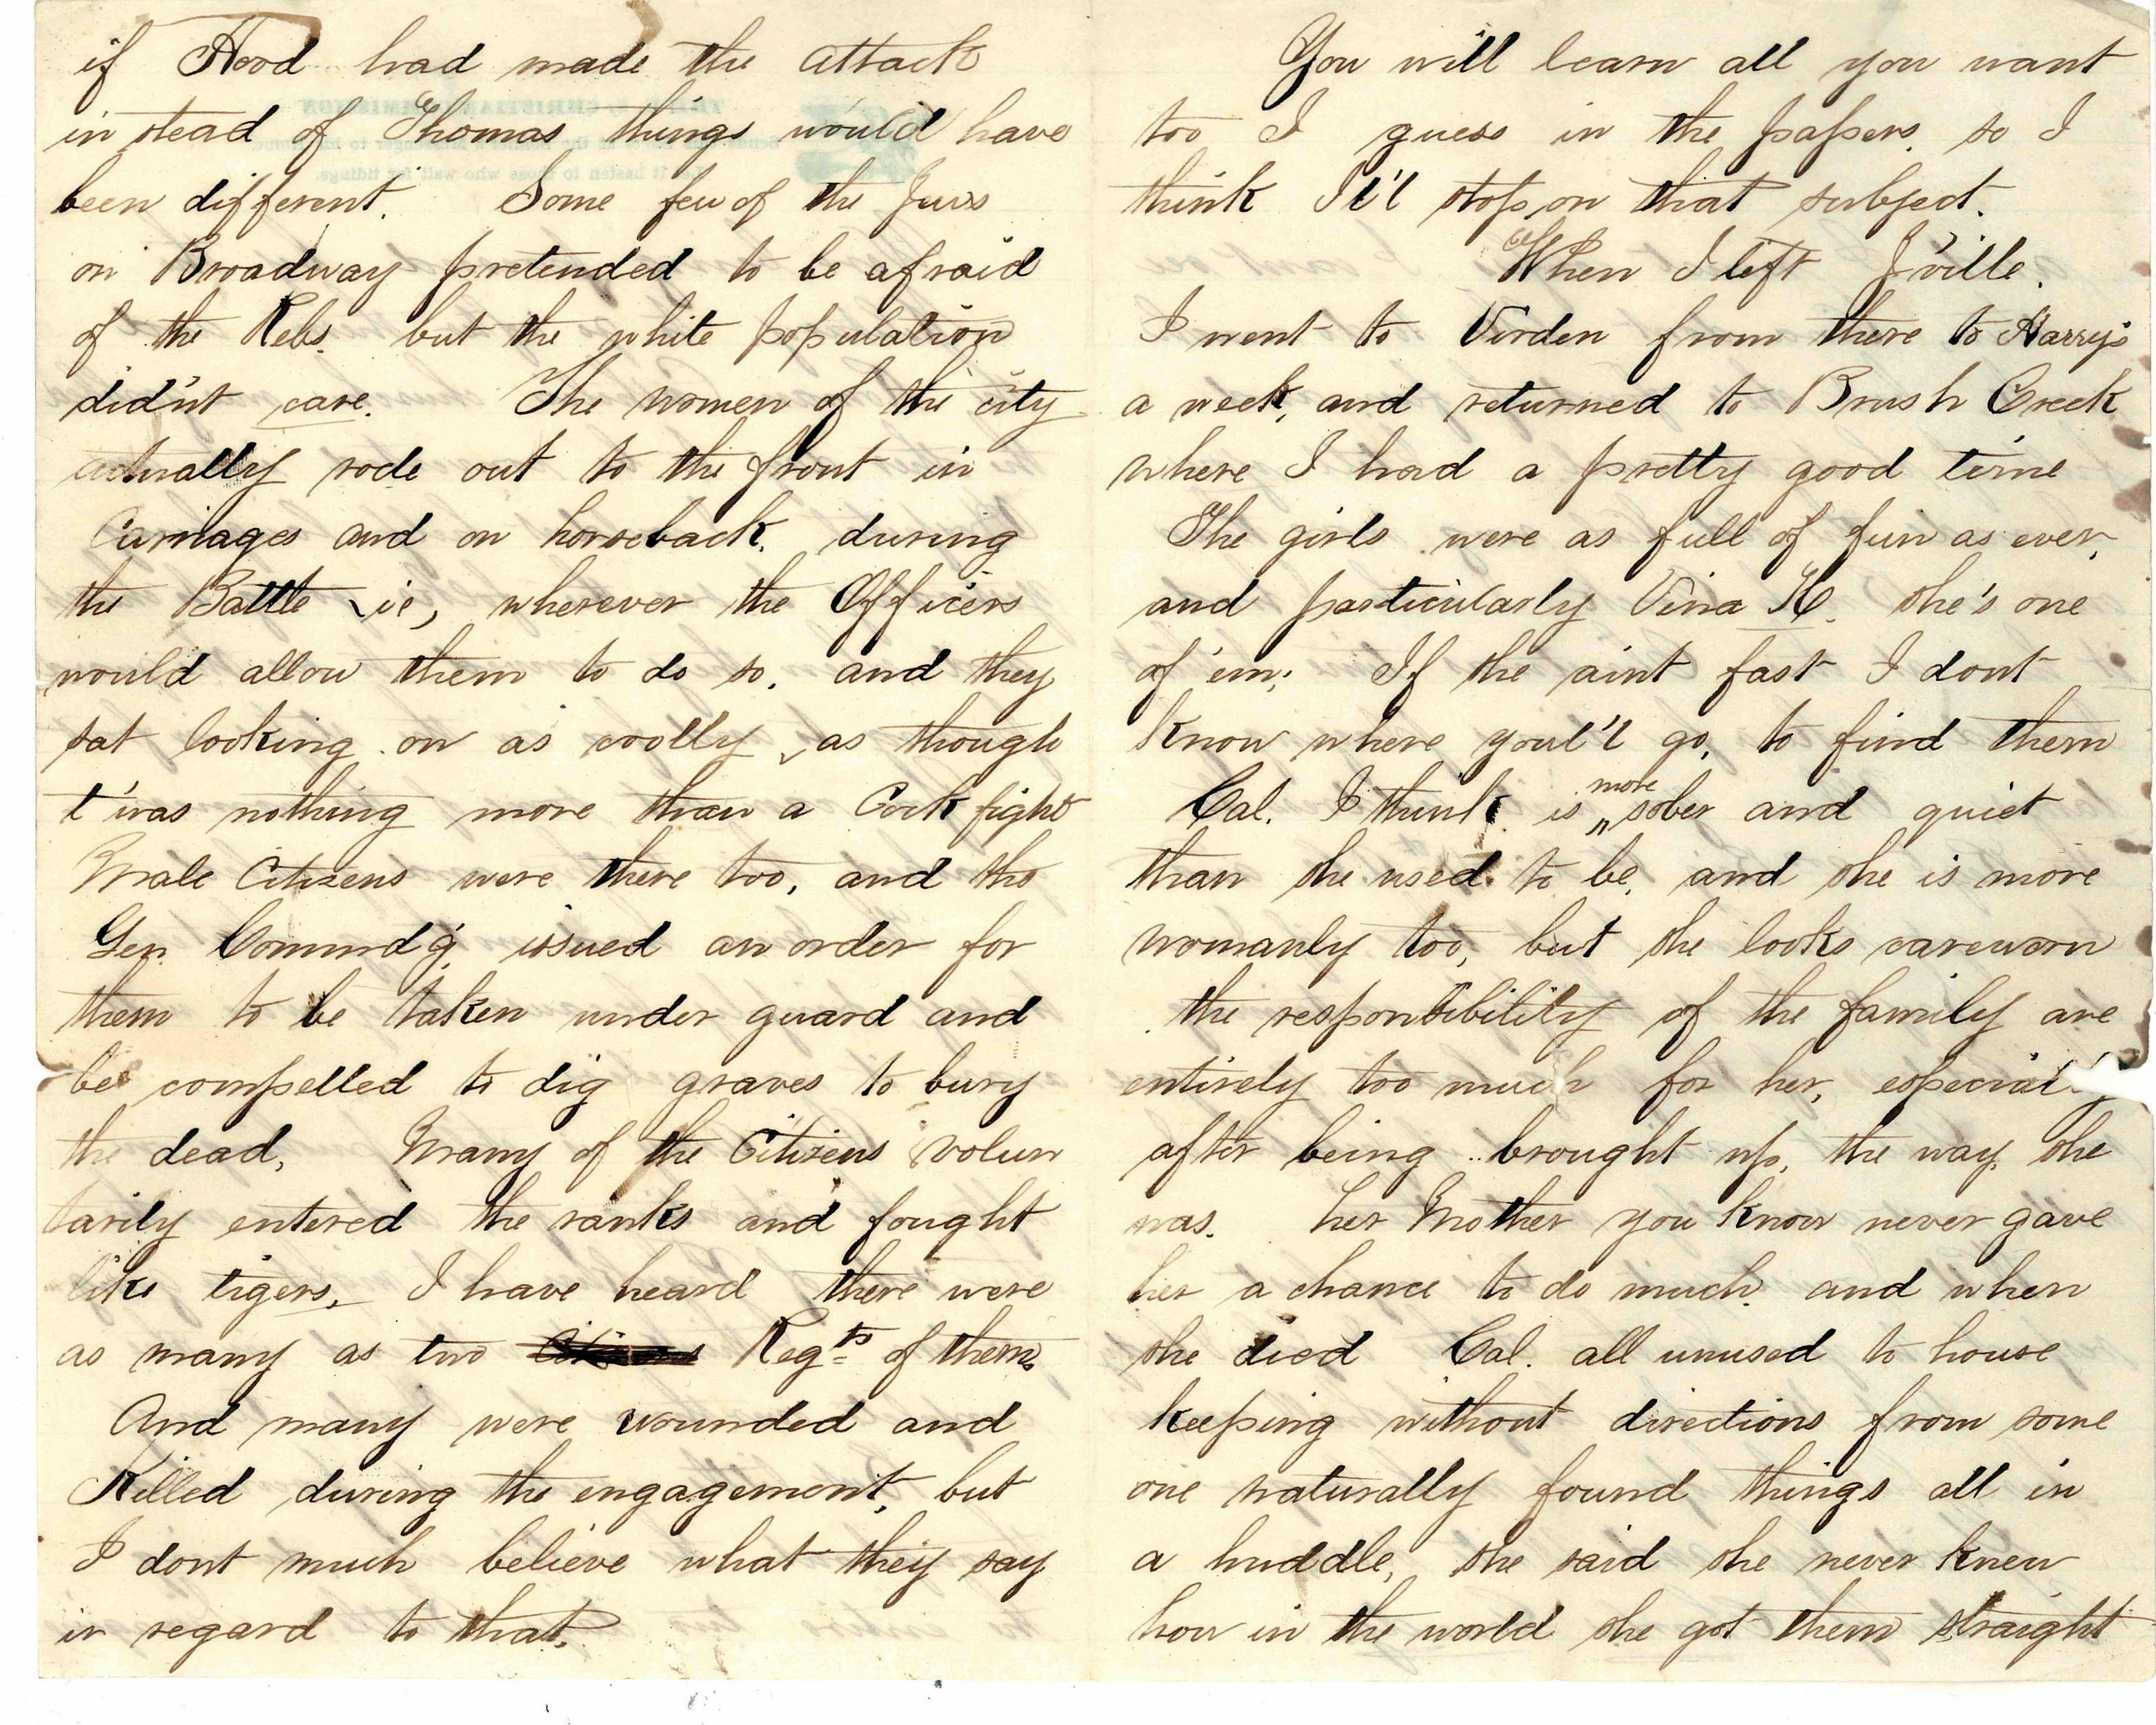 if Hood had made the attack
in stead of Thomas things would have
been different. Some few of the Jews
on Broadway pretended to be afraid
of the Rebs. but the white population
did'nt care. The women of the city
actually rode out to the front in
Carriages and on horseback. during
the Battle ie, wherever the Officers
would allow them to do so. and they
sat looking on as coolly, as though
t'was nothing more than a Cock fight
Male Citizens were there too, and the
Gen Commd'g issued an order for
them to be taken under guard and
be compelled to dig graves to bury
the dead, Many of the Citizens volun
tarily entered the ranks and fought
like tigers. I have heard there were
as many as two Citizens Regts of them.
And many were wounded and
Killed during the engagement, but
I dont much believe what they say
in regard to that.
You will learn all you want
too I guess in the papers. so I
think I'l'l stop on that subject.
When I left J'ville.
I went to Virden from there to Harrys
a week, and returned to Brush Creek
where I had a pretty good time
The girls were as full of fun as ever,
and particularly Vina H. she's one
of 'em; If the aint fast I dont
know where youl'l go, to find them
Cal. I think is more sober and quiet
than she used to be, and she is more
womanly too, but she looks careworn
the responsibility of the family are
entirely too much for her, especial
after being brought up, the way she
was. her Mother you know never gave
her a chance to do much. and when
she died Cal. all unused to house
keeping without directions from some
one naturally found things all in
a huddle, she said she never knew
how in the world she got them straight